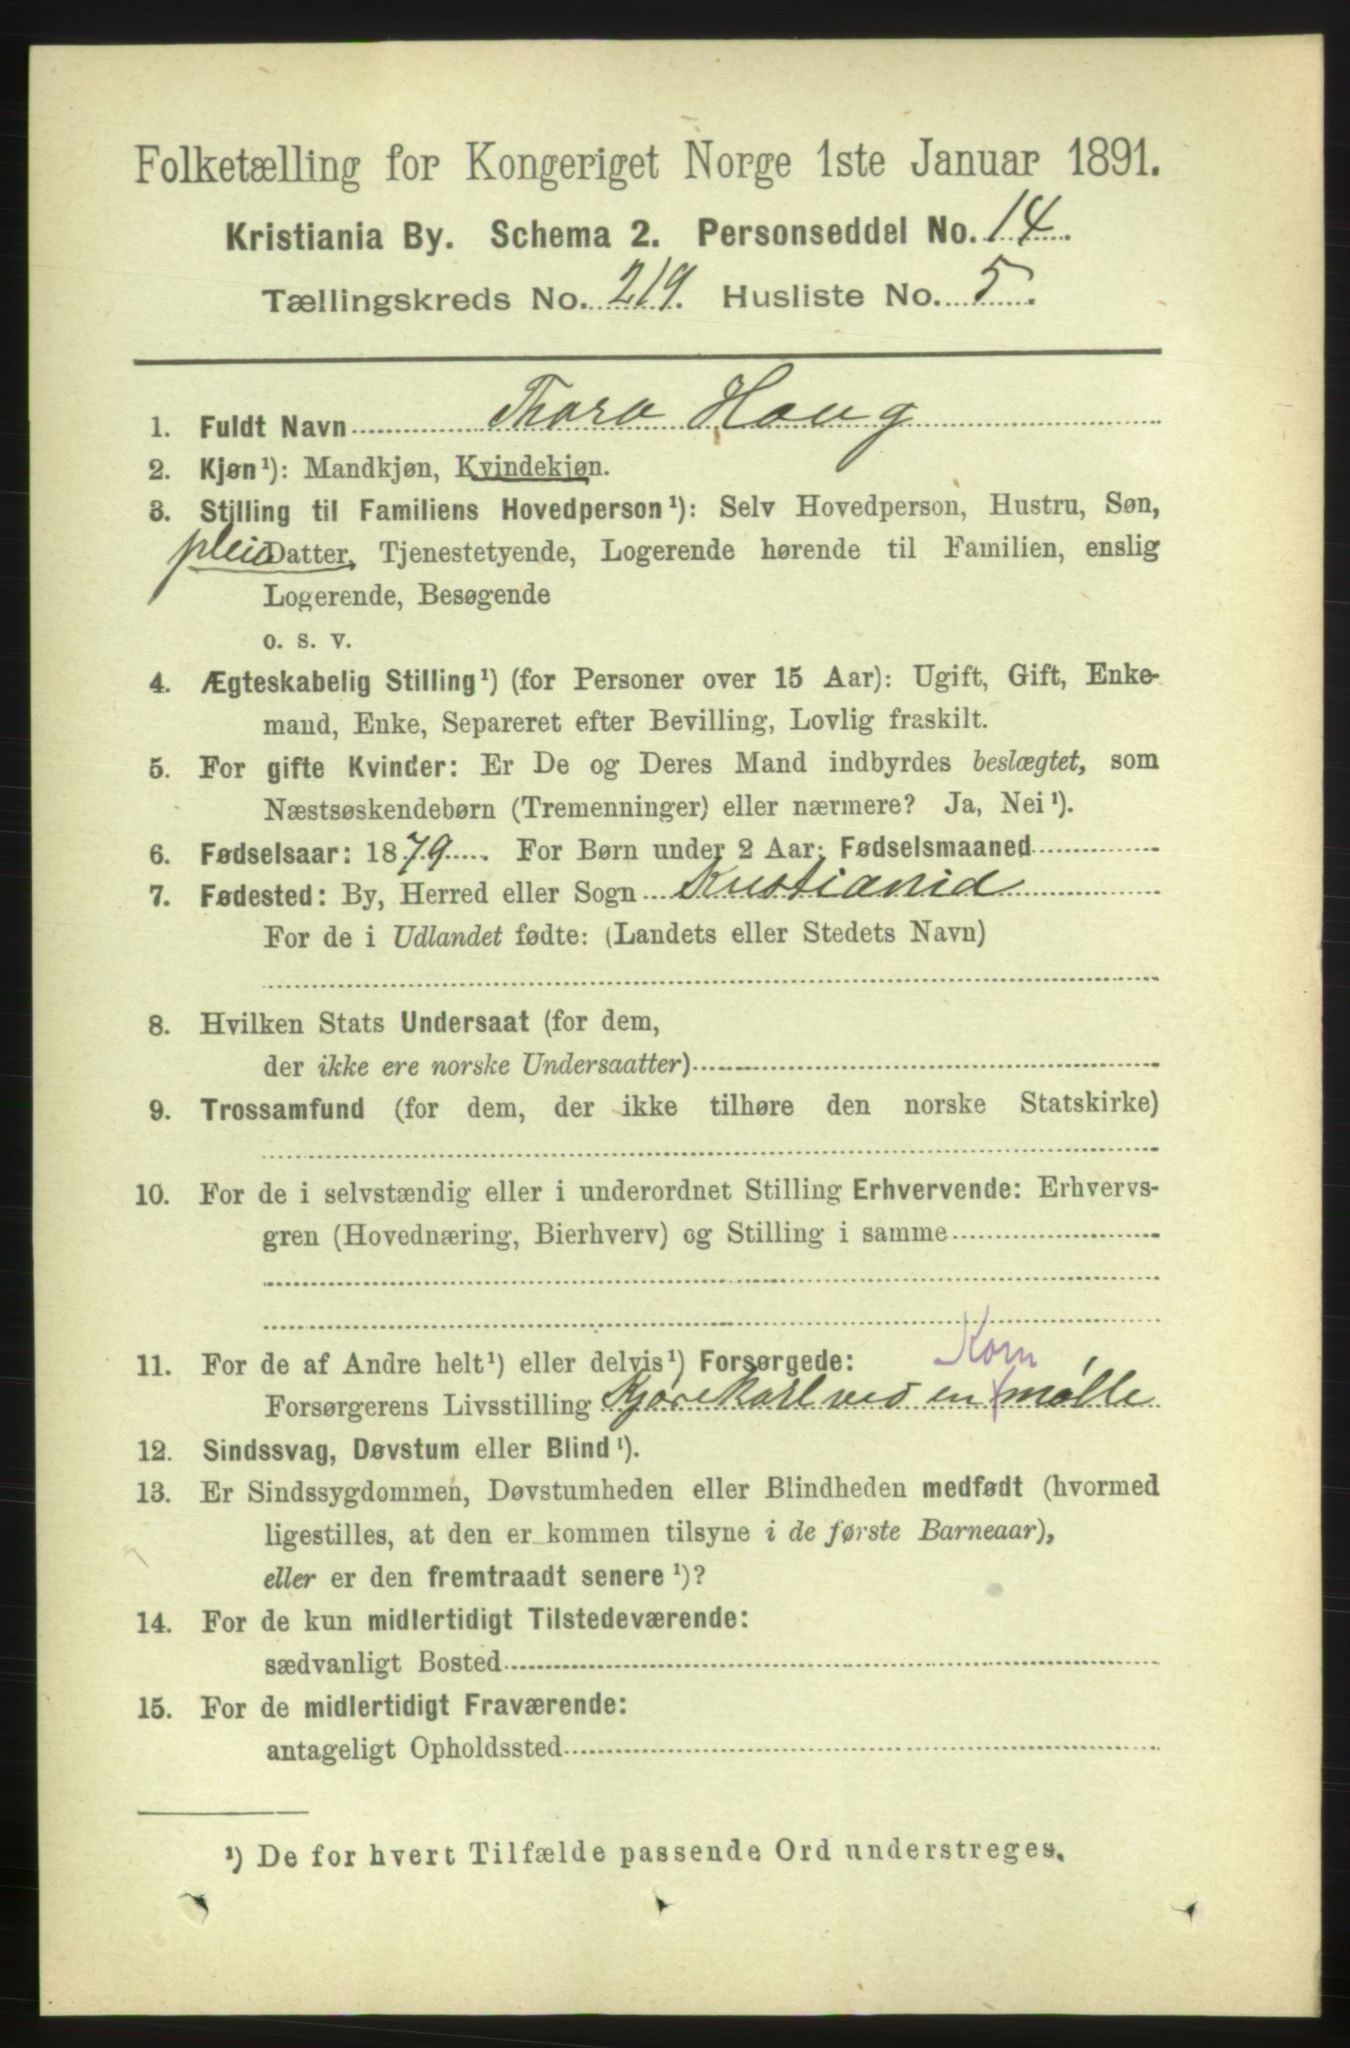 Folketælling for Kongeriget Norge 1ste Januar 1891.
Kristiania By. Schema 2. Personseddel No. 14.
Tællingskreds No. 219. Husliste No. 5.
1. Fuldt Navn Thora Haug
2. Kjøn¹): Mandkjøn, Kvindekjøn.
3. Stilling til Familiens Hovedperson¹): Selv Hovedperson, Hustru, Søn,
pleie Datter, Tjenestetyende, Logerende hørende til Familien, enslig
Logerende, Besøgende
o. s. v.
4. Ægteskabelig Stilling¹) (for Personer over 15 Aar): Ugift, Gift, Enke-
mand, Enke, Separeret efter Bevilling, Lovlig fraskilt.
5. For gifte Kvinder: Er De og Deres Mand indbyrdes beslægtet, som
Næstsøskendebørn (Tremenninger) eller nærmere? Ja, Nei¹).
6. Fødselsaar: 1879. For Børn under 2 Aar: Fødselsmaaned
7. Fødested: By, Herred eller Sogn Kristiania
For de i Udlandet fødte: (Landets eller Stedets Navn)
8. Hvilken Stats Undersaat (for dem,
der ikke ere norske Undersaatter)
9. Trossamfund (for dem, der ikke tilhøre den norske Statskirke)
10. For de i selvstændig eller i underordnet Stilling Erhvervende: Erhvervs-
gren (Hovednæring, Bierhverv) og Stilling i samme
11. For de af Andre helt¹) eller delvis¹) Forsørgede: Korn
Forsørgerens Livsstilling Kjørekarl ved en mølle
12. Sindssvag, Døvstum eller Blind¹).
13. Er Sindssygdommen, Døvstumheden eller Blindheden medfødt (hvormed
ligestilles, at den er kommen tilsyne i de første Barneaar),
eller er den fremtraadt senere¹)?
14. For de kun midlertidigt Tilstedeværende:
sædvanligt Bosted
15. For de midlertidigt Fraværende:
antageligt Opholdssted
¹) De for hvert Tilfælde passende Ord understreges.